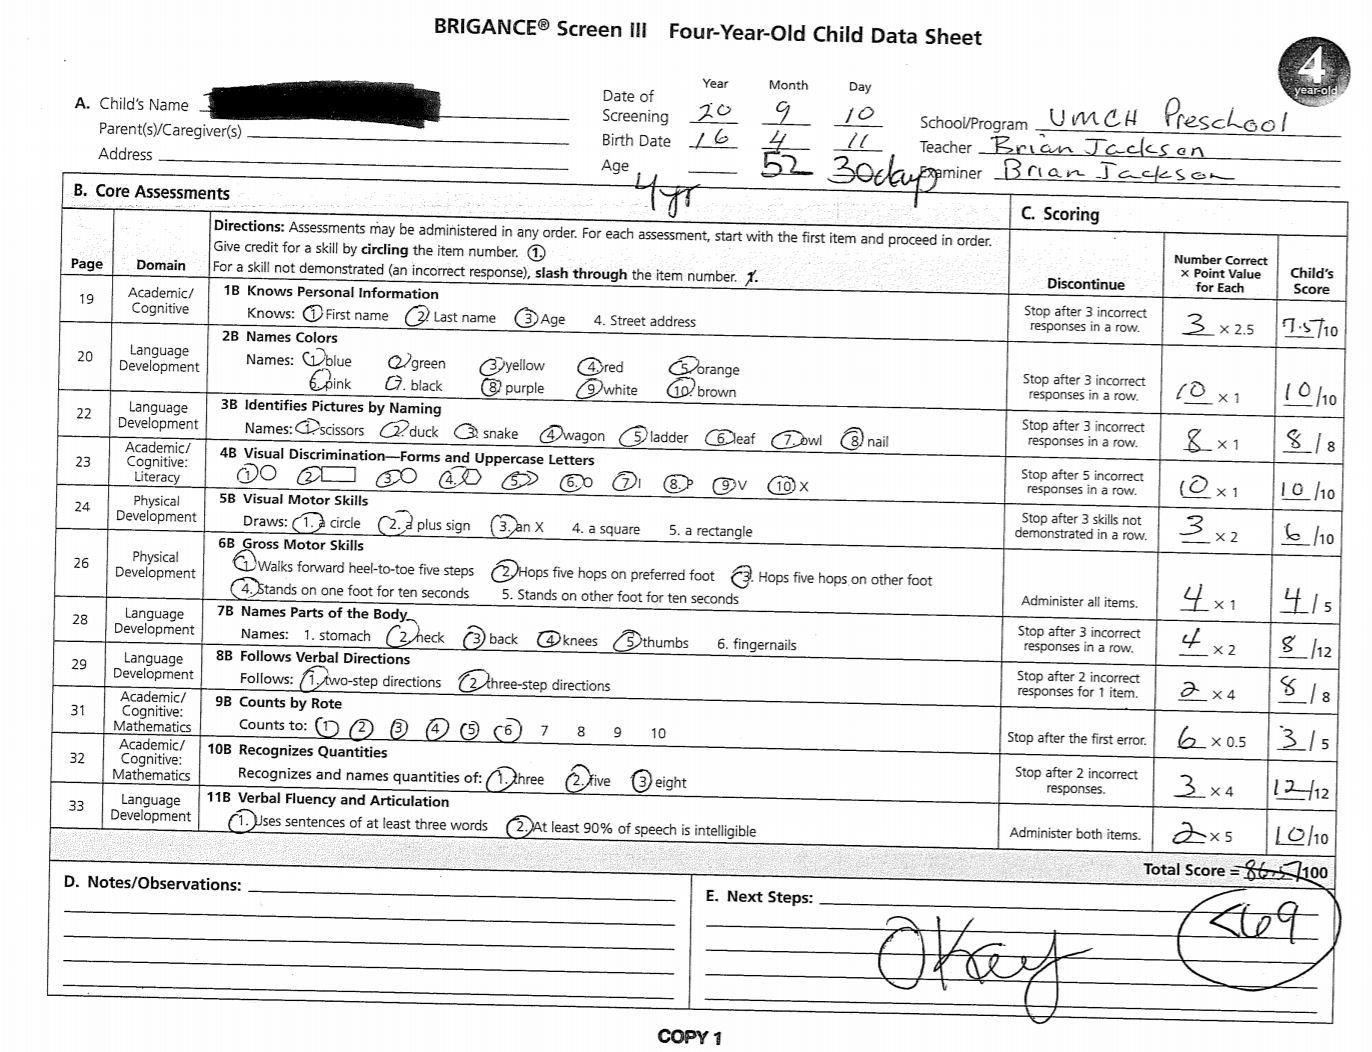 BRIGANCE® Screen III Four-Year-Old Child Data Sheet
4
year-old
Year Month Day
A. Child's Name
Date of Screening 20 9 10
School/Program UMCH Preschool
Parent(s)/Caregiver(s)
Birth Date 16 4 11
Teacher Brian Jackson
Address
Age 4yr 52 30days
Examiner Brian Jackson
B. Core Assessments
C. Scoring
Page Domain
Directions: Assessments may be administered in any order. For each assessment, start with the first item and proceed in order.
Give credit for a skill by circling the item number. 1.
For a skill not demonstrated (an incorrect response), slash through the item number. 1.
Discontinue
Number Correct × Point Value for Each
Child's Score
19 Academic/Cognitive
1B Knows Personal Information
Knows: 1 First name 2 Last name 3 Age 4. Street address
Stop after 3 incorrect responses in a row.
3 × 2.5 7.5/10
20 Language Development
2B Names Colors
Names: 1 blue 2 green 3 yellow 4. red 5. orange
6. pink 7. black 8 purple 9 white 10. brown
Stop after 3 incorrect responses in a row.
10 × 1 10/10
22 Language Development
3B Identifies Pictures by Naming
Names: 1. scissors 2. duck 3. snake 4 wagon 5 ladder 6 leaf 7. owl 8 nail
Stop after 3 incorrect responses in a row.
8 × 1 8/8
23 Academic/Cognitive: Literacy
4B Visual Discrimination—Forms and Uppercase Letters
1 2 3 4. 5 6. O 7 I 8. P 9 V 10 X
Stop after 5 incorrect responses in a row.
10 × 1 10/10
24 Physical Development
5B Visual Motor Skills
Draws: 1. a circle 2. a plus sign 3. an X 4. a square 5. a rectangle
Stop after 3 skills not demonstrated in a row.
3 × 2 6/10
26 Physical Development
6B Gross Motor Skills
1 Walks forward heel-to-toe five steps 2. Hops five hops on preferred foot 3. Hops five hops on other foot
4. Stands on one foot for ten seconds 5. Stands on other foot for ten seconds
Administer all items.
4 × 1 4/5
28 Language Development
7B Names Parts of the Body
Names: 1. stomach 2 neck 3 back 4 knees 5 thumbs 6. fingernails
Stop after 3 incorrect responses in a row.
4 × 2 8/12
29 Language Development
8B Follows Verbal Directions
Follows: 1. two-step directions 2 three-step directions
Stop after 2 incorrect responses for 1 item.
2 × 4 8/8
31 Academic/Cognitive: Mathematics
9B Counts by Rote
Counts to: 1 2 3 4 5 6 7 8 9 10
Stop after the first error.
6 × 0.5 3/5
32 Academic/Cognitive: Mathematics
10B Recognizes Quantities
Recognizes and names quantities of: 1. three 2. five 3 eight
Stop after 2 incorrect responses.
3 × 4 12/12
33 Language Development
11B Verbal Fluency and Articulation
1. Uses sentences of at least three words 2. At least 90% of speech is intelligible
Administer both items.
2 × 5 10/10
Total Score = 86.5/100
D. Notes/Observations:
E. Next Steps:
<69
OKay
COPY 1